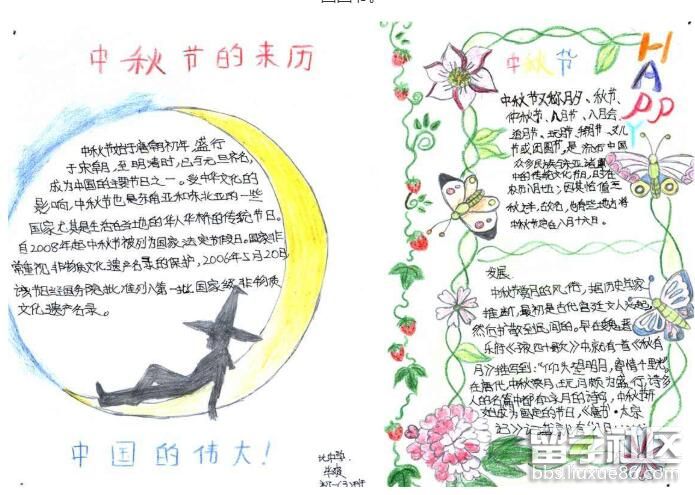 中秋节的来历
中秋节始于唐朝初年,盛行
于宋朝,至明清时,已与元旦齐名,
成为中国的主要节日之一。受中华文化的
影响,中秋节也是东南亚和东北亚的一些
国家尤其是生活在当地的华人华侨的传统节日。
自2008年起中秋节被列为国家法定节假日。国家非
常重视非物质文化遗产名录的保护,2006年5月20日
该节日经国务院批准列入第一批国家级非物质
文化遗产名录。
中国的伟大!
中秋节
HAPPY
中秋节又称月夕、秋节、
仲秋节、八月节、八月会、
追月节、玩月节、拜月节、女儿
节或团圆节,是流行中国
众多民族与东亚诸国
中的传统文化节日,时在
农历八月十五;因其恰值三
秋之半,故名,也有些地方将
中秋节定在八月十六日。
发展:
中秋节赏月的风俗,据历史学家
推断,最初是古代宫廷文人兴起,
然后扩散至民间的。早在魏晋
乐府《子夜四十歌》中就有一首《秋有
月》描写到:"仰头望明月,寄情千里光"。
在唐代中秋赏月、玩月颇为盛行,许多
人的名篇中都有咏月的诗句,中秋节开
始成为固定的节日,《唐书·太宗
记》
留学社区
bbs.liuxue86.com